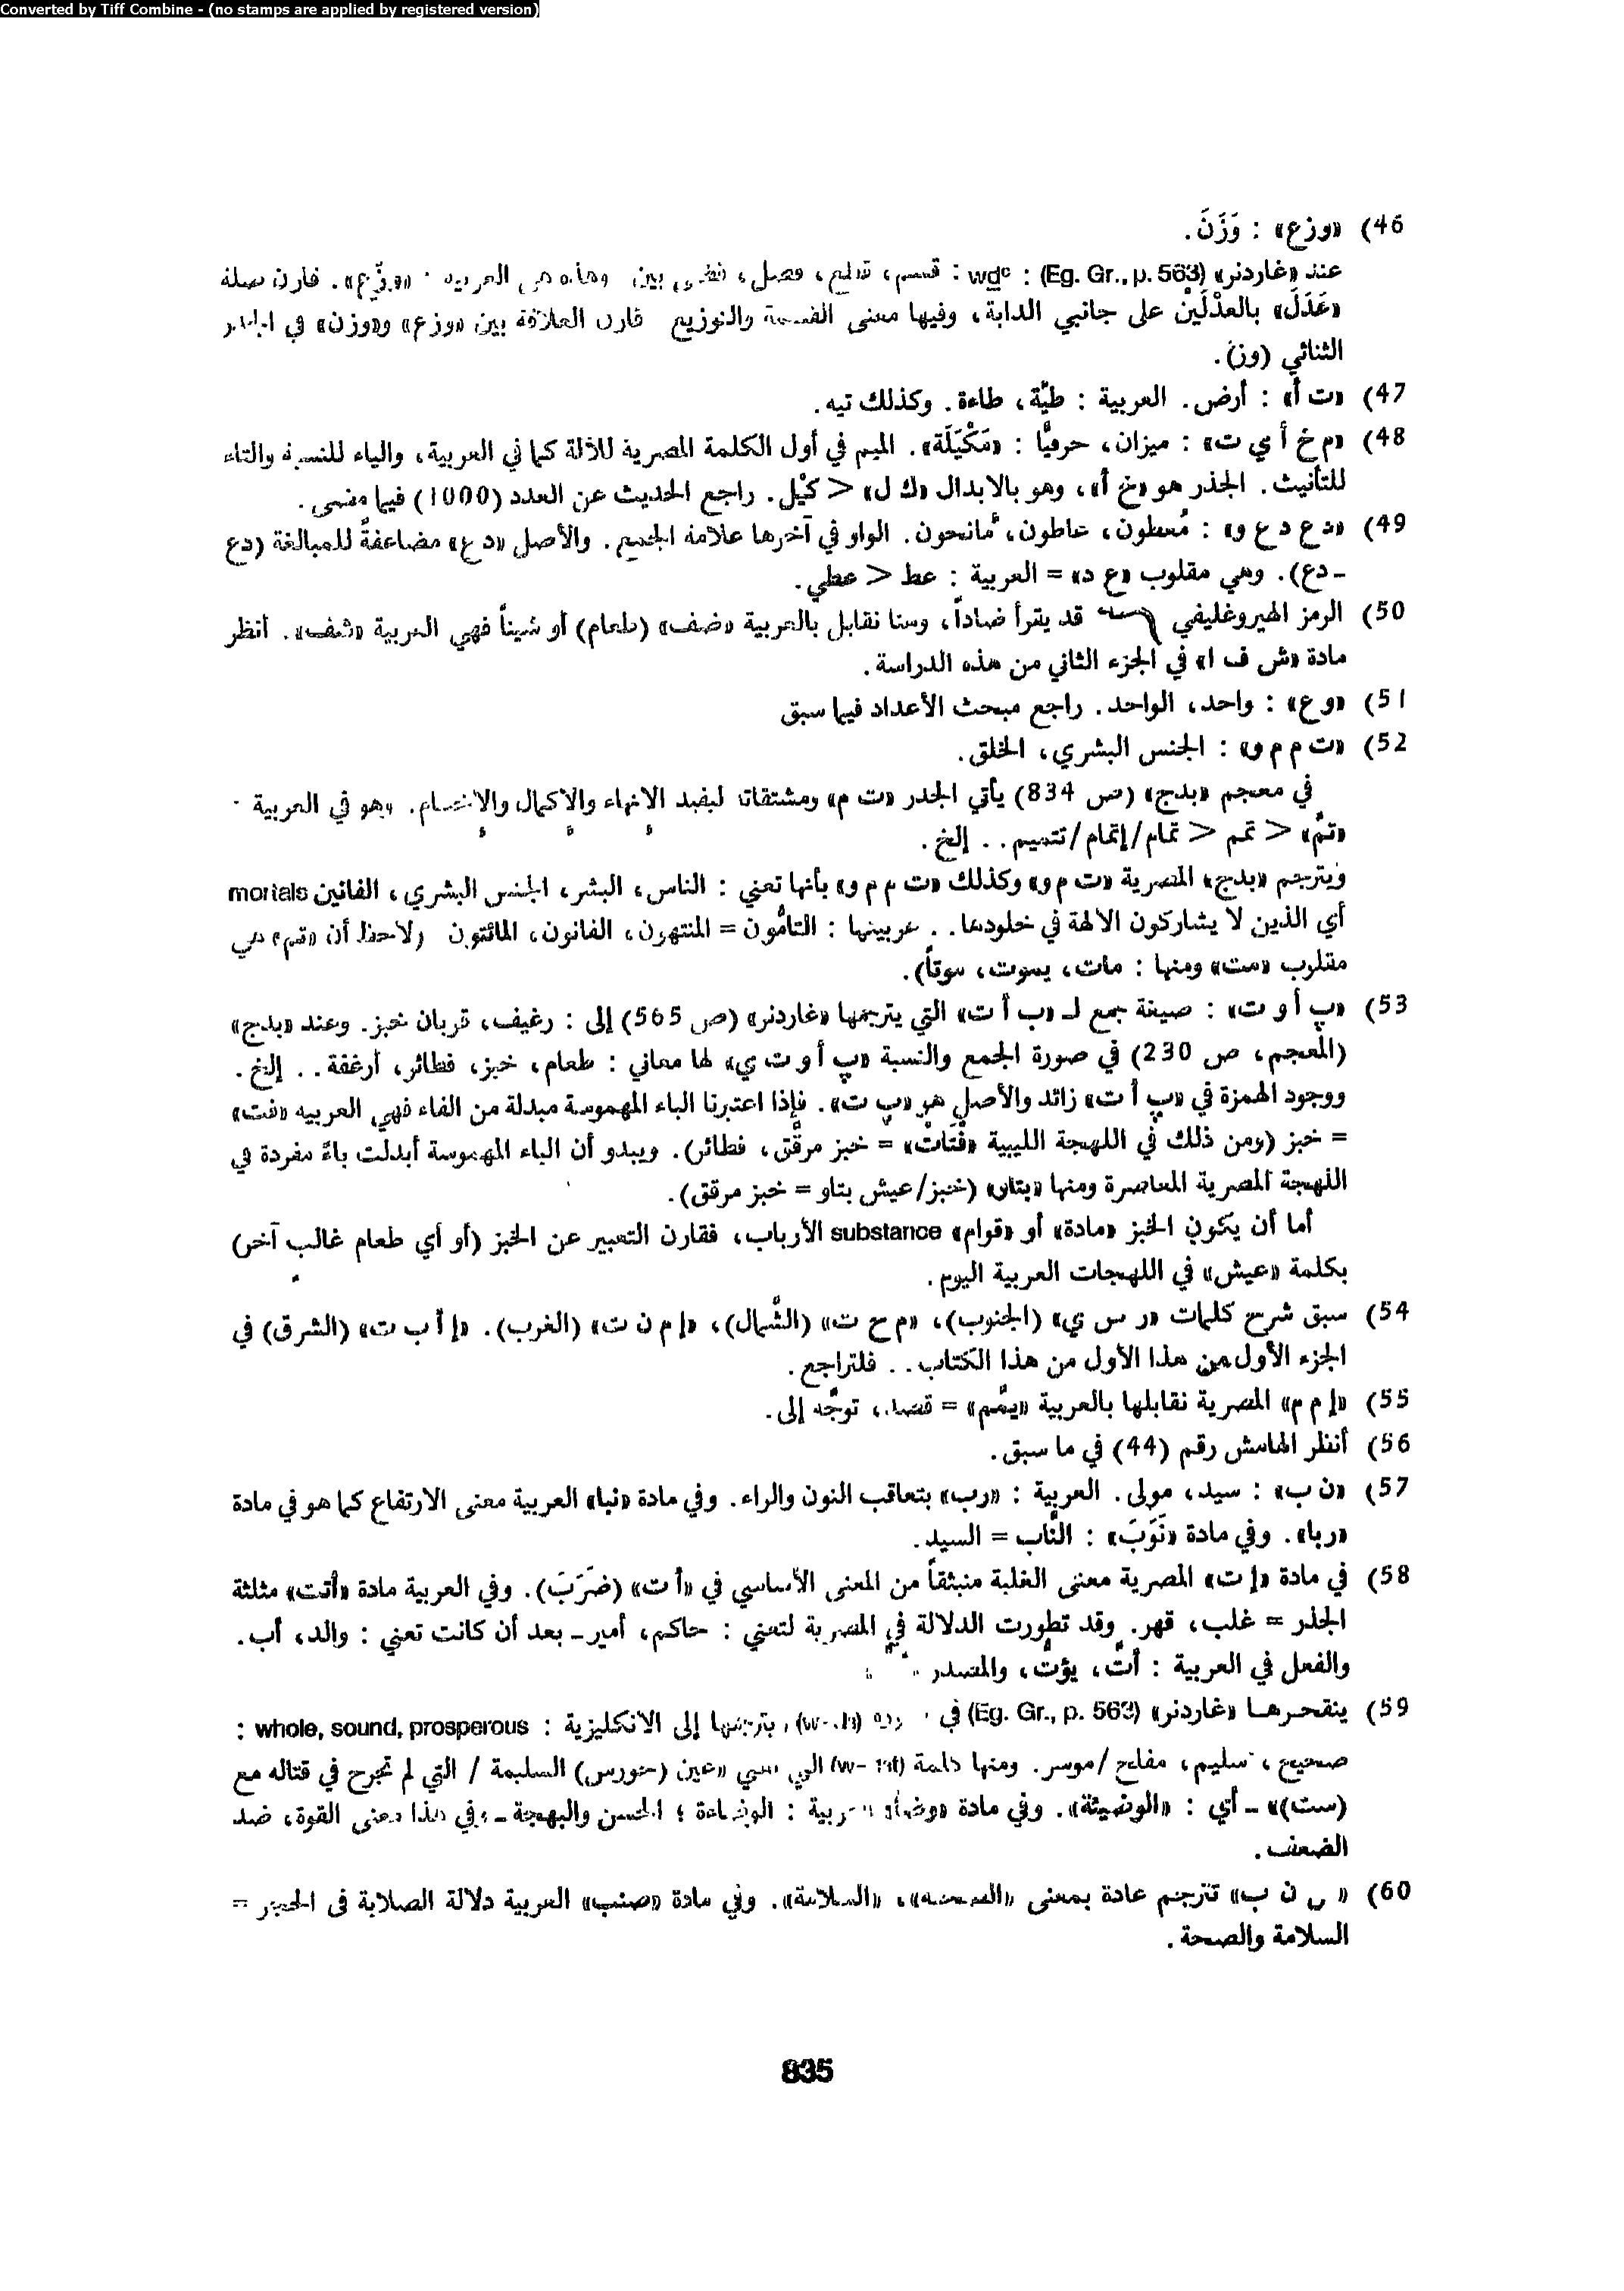 Converted by Tiff Combine - (no stamps are applied by registered version)
46) «وزع» : وَزَنَ.
عند «غاردنر» (Eg. Gr., p. 563) : wdᶜ : قسم، فصل، بين العربية «وزّع». قارن صلة
«عَدَلَ» بالعدْلَيْن على جانبي الدابة، وفيها معنى القسمة والتوزيع قارن العلاقة بين «وزع» و«وزن» في الجذر
الثنائي (وز).
47) «ت أ» : أرض. العربية : طيّة، طاءة. وكذلك تيه.
48) «م خ أ ي ت» : ميزان، حرفيًّا : «مَكْيَلَة». الميم في أول الكلمة المصرية للآلة كما في العربية، والياء للنسبة والتاء
للتأنيث. الجذر هو «خ أ»، وهو بالابدال «ك ل» < كَيْل. راجع الحديث عن العدد (1000) فيما مضى.
49) «د ع د ع و» : مُعطون، عاطون، مانحون. الواو في آخرها علامة الجمع. والأصل «د ع» مضاعفةً للمبالغة (دع
- دع). وهي مقلوب «ع د» = العربية : عط < عطي.
50) الرمز الهيروغليفي قد يقرأ ضاداً، وهنا نقابل بالعربية «ضف» (طعام) أو شيناً فهي العربية «شف». أنظر
مادة «ش ف ا» في الجزء الثاني من هذه الدراسة.
51) «و ع» : واحد، الواحد. راجع مبحث الأعداد فيما سبق
52) «ت م م و» : الجنس البشري، الخلق.
في معجم «بدج» (ص 834) يأتي الجذر «ت م» ومشتقاته ليفيد الإنهاء والإكمال والإختتام. وهو في العربية
«تمّ» < تمم < تمام/إتمام/تتميم . . إلخ.
ويترجم «بدج» المصرية «ت م و» وكذلك «ت م م و» بأنها تعني : الناس، البشر، الجنس البشري، الفانين mortals
أي الذين لا يشاركون الآلهة في خلودها. . عربيتها : التامُّون = المنتهون، الفانون، المائتون ولاحظ أن «تم» هي
مقلوب «مت» ومنها : مات، يموت، موتاً).
53) «پ أ و ت» : صيغة جمع لـ «پ أ ت» التي يترجمها «غاردنر» (ص 565) إلى : رغيف، قربان خبز. وعند «بدج»
(المعجم، ص 230) في صورة الجمع والنسبة «پ أ و ت ي» لها معاني : طعام، خبز، فطائر، أرغفة . . إلخ.
ووجود الهمزة في «پ أ ت» زائد والأصل هو «پ ت». فإذا اعتبرنا الباء المهموسة مبدلة من الفاء فهي العربية «فت»
= خبز (ومن ذلك في اللهجة الليبية «فْتَاتْ» = خبز مرقَّق، فطائر). ويبدو أن الباء المهموسة أبدلت باءً مفردة في
اللهجة المصرية المعاصرة ومنها «بتاو» (خبز/عيش بتاو = خبز مرقق).
أما أن يكون الخبز «مادة» أو «قوام» substance الأرباب، فقارن التعبير عن الخبز (أو أي طعام غالب آخر)
بكلمة «عيش» في اللهجات العربية اليوم.
54) سبق شرح كلمات «ر س ي» (الجنوب)، «م ح ت» (الشَّمال)، «إ م ن ت» (الغرب). «إ أ ب ت» (الشرق) في
الجزء الأول من هذا الأول من هذا الكتاب . . فلتراجع.
55) «إ م م» المصرية نقابلها بالعربية «يمّم» = قصد، توجّه إلى.
56) أنظر الهامش رقم (44) في ما سبق.
57) «ن ب» : سيد، مولى. العربية : «رب» بتعاقب النون والراء. وفي مادة «نبا» العربية معنى الارتفاع كما هو في مادة
«ربا». وفي مادة «نَوَبَ» : النّاب = السيد.
58) في مادة «إ ت» المصرية معنى الغلبة منبثقاً من المعنى الأساسي في «أ ت» (ضَرَبَ). وفي العربية مادة «أتت» مثلثة
الجذر = غلب، قهر. وقد تطورت الدلالة في المصرية لتعني : حاكم، أمير ـ بعد أن كانت تعني : والد، أب.
والفعل في العربية : أتَّ، يؤتُّ، والمصدر
59) ينقحرها «غاردنر» (Eg. Gr., p. 563) في يترجمها إلى الانكليزية : whole, sound, prosperous :
صحيح، سليم، مفلح/موسر. ومنها كلمة «عين (حورس) السليمة / التي لم تجرح في قتاله مع
(ست)» ـ أي : «الوضيئة». وفي مادة «وضأ» العربية : الوضاءة ؛ الحسن والبهجة ـ وفي هذا معنى القوة، ضد
الضعف.
60) ن ب» تترجم عادة بمعنى «الصحة»، «السلامة». وفي مادة «صنب» العربية دلالة الصلابة في الحجر =
السلامة والصحة.
835